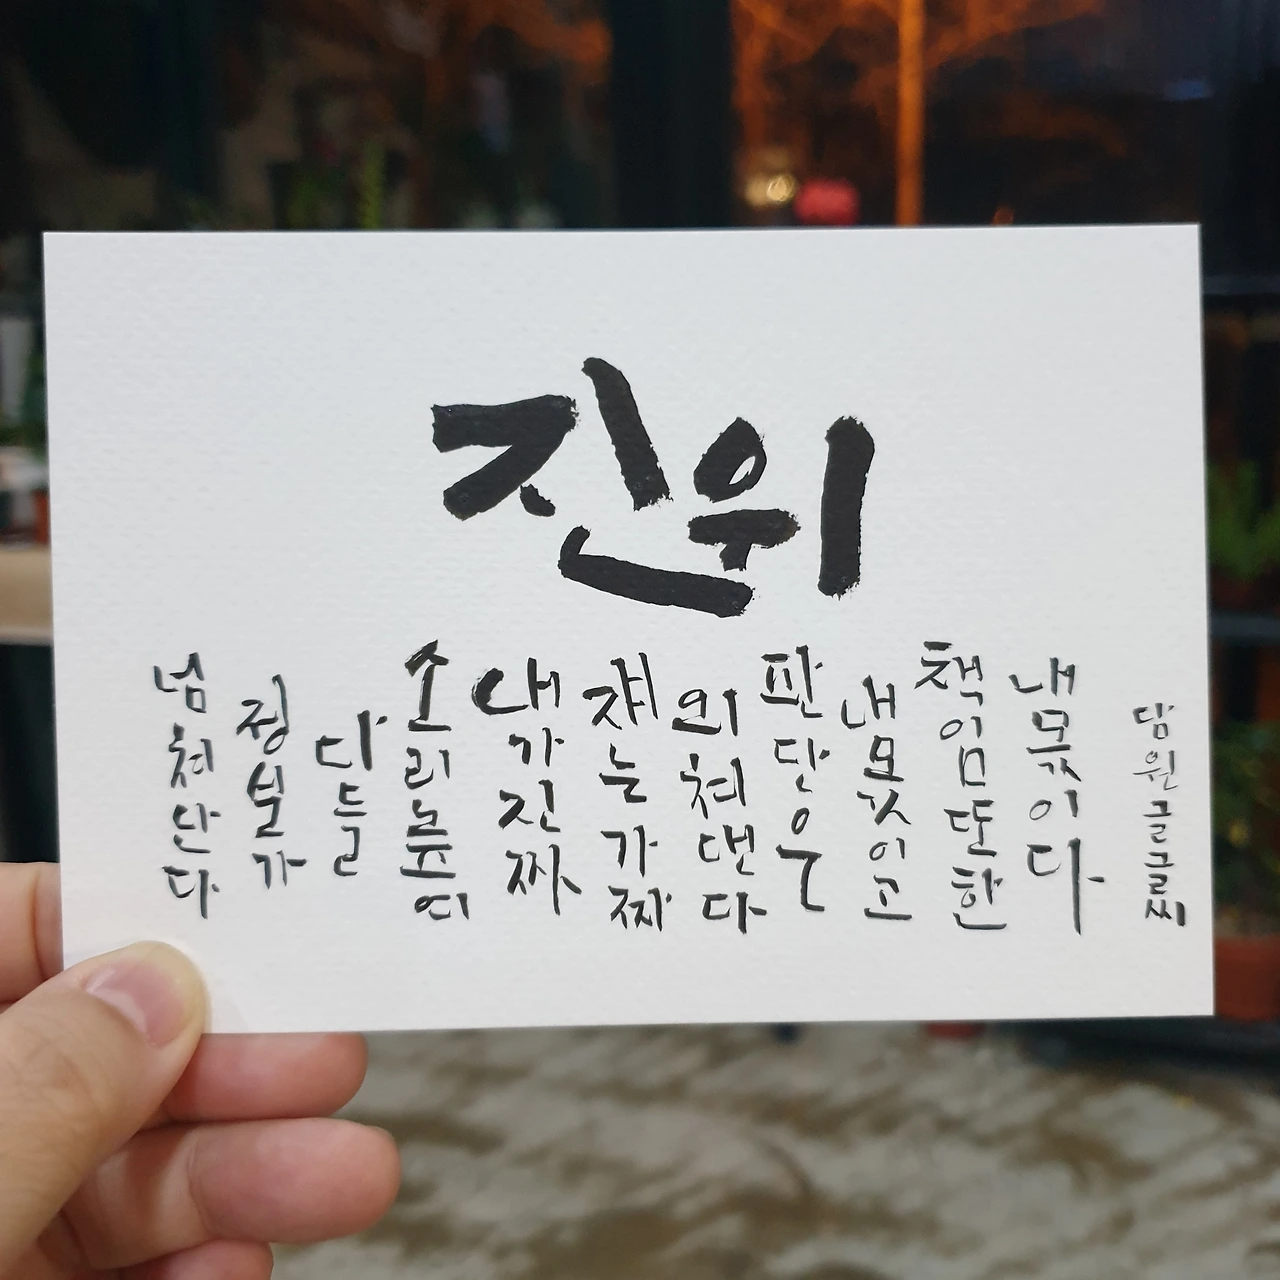 진위
넘쳐난다
정보가
다들
소리높여
내가진짜
쟤는가짜
외쳐댄다
판단은
내몫이고
책임또한
내몫이다
담원글글씨